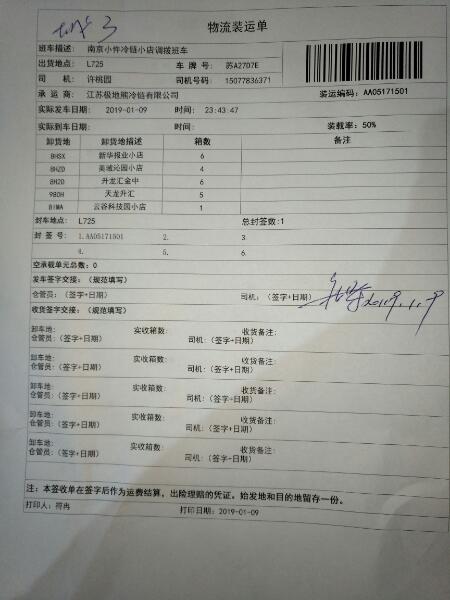 物流装运单
班车描述: 南京小件冷链小店调拨班车
出货地点: L725 车 牌 号: 苏A2707E
司 机: 许桃园 司机号码: 15077836371
承 运 商: 江苏极地熊冷链有限公司 装运编码: AA05171501
实际发车日期: 2019-01-09 时间: 23:43:47
实际到车日期: 时间: 装载率: 50%
卸货地 卸货地描述 箱数 备注
8HSX 新华报业小店 6
8HZD 美域沁园小店 4
8H2D 升龙汇金中 6
980H 天龙升汇 5
81MA 云谷科技园小店 1
封车地点: L725 总封签数:1
封 签 号: 1.AA05171501 2. 3.
4. 5. 6.
空承载单元总数: 0
发车签字交接: (规范填写)
仓管员: (签字+日期) 司机: (签字+日期) 2019.1.9
收货签字交接: (规范填写)
卸车地: 实收箱数: 收货备注:
仓管员: (签字+日期) 司机: (签字+日期)
卸车地: 实收箱数: 收货备注:
仓管员: (签字+日期) 司机: (签字+日期)
卸车地: 实收箱数: 收货备注:
仓管员: (签字+日期) 司机: (签字+日期)
卸车地: 实收箱数: 收货备注:
仓管员: (签字+日期) 司机: (签字+日期)
卸车地: 实收箱数: 收货备注:
仓管员: (签字+日期) 司机: (签字+日期)
注: 本签收单在签字后作为运费结算, 出险理赔的凭证。始发地和目的地留存一份。
打印人: 符冉 打印日期: 2019-01-09